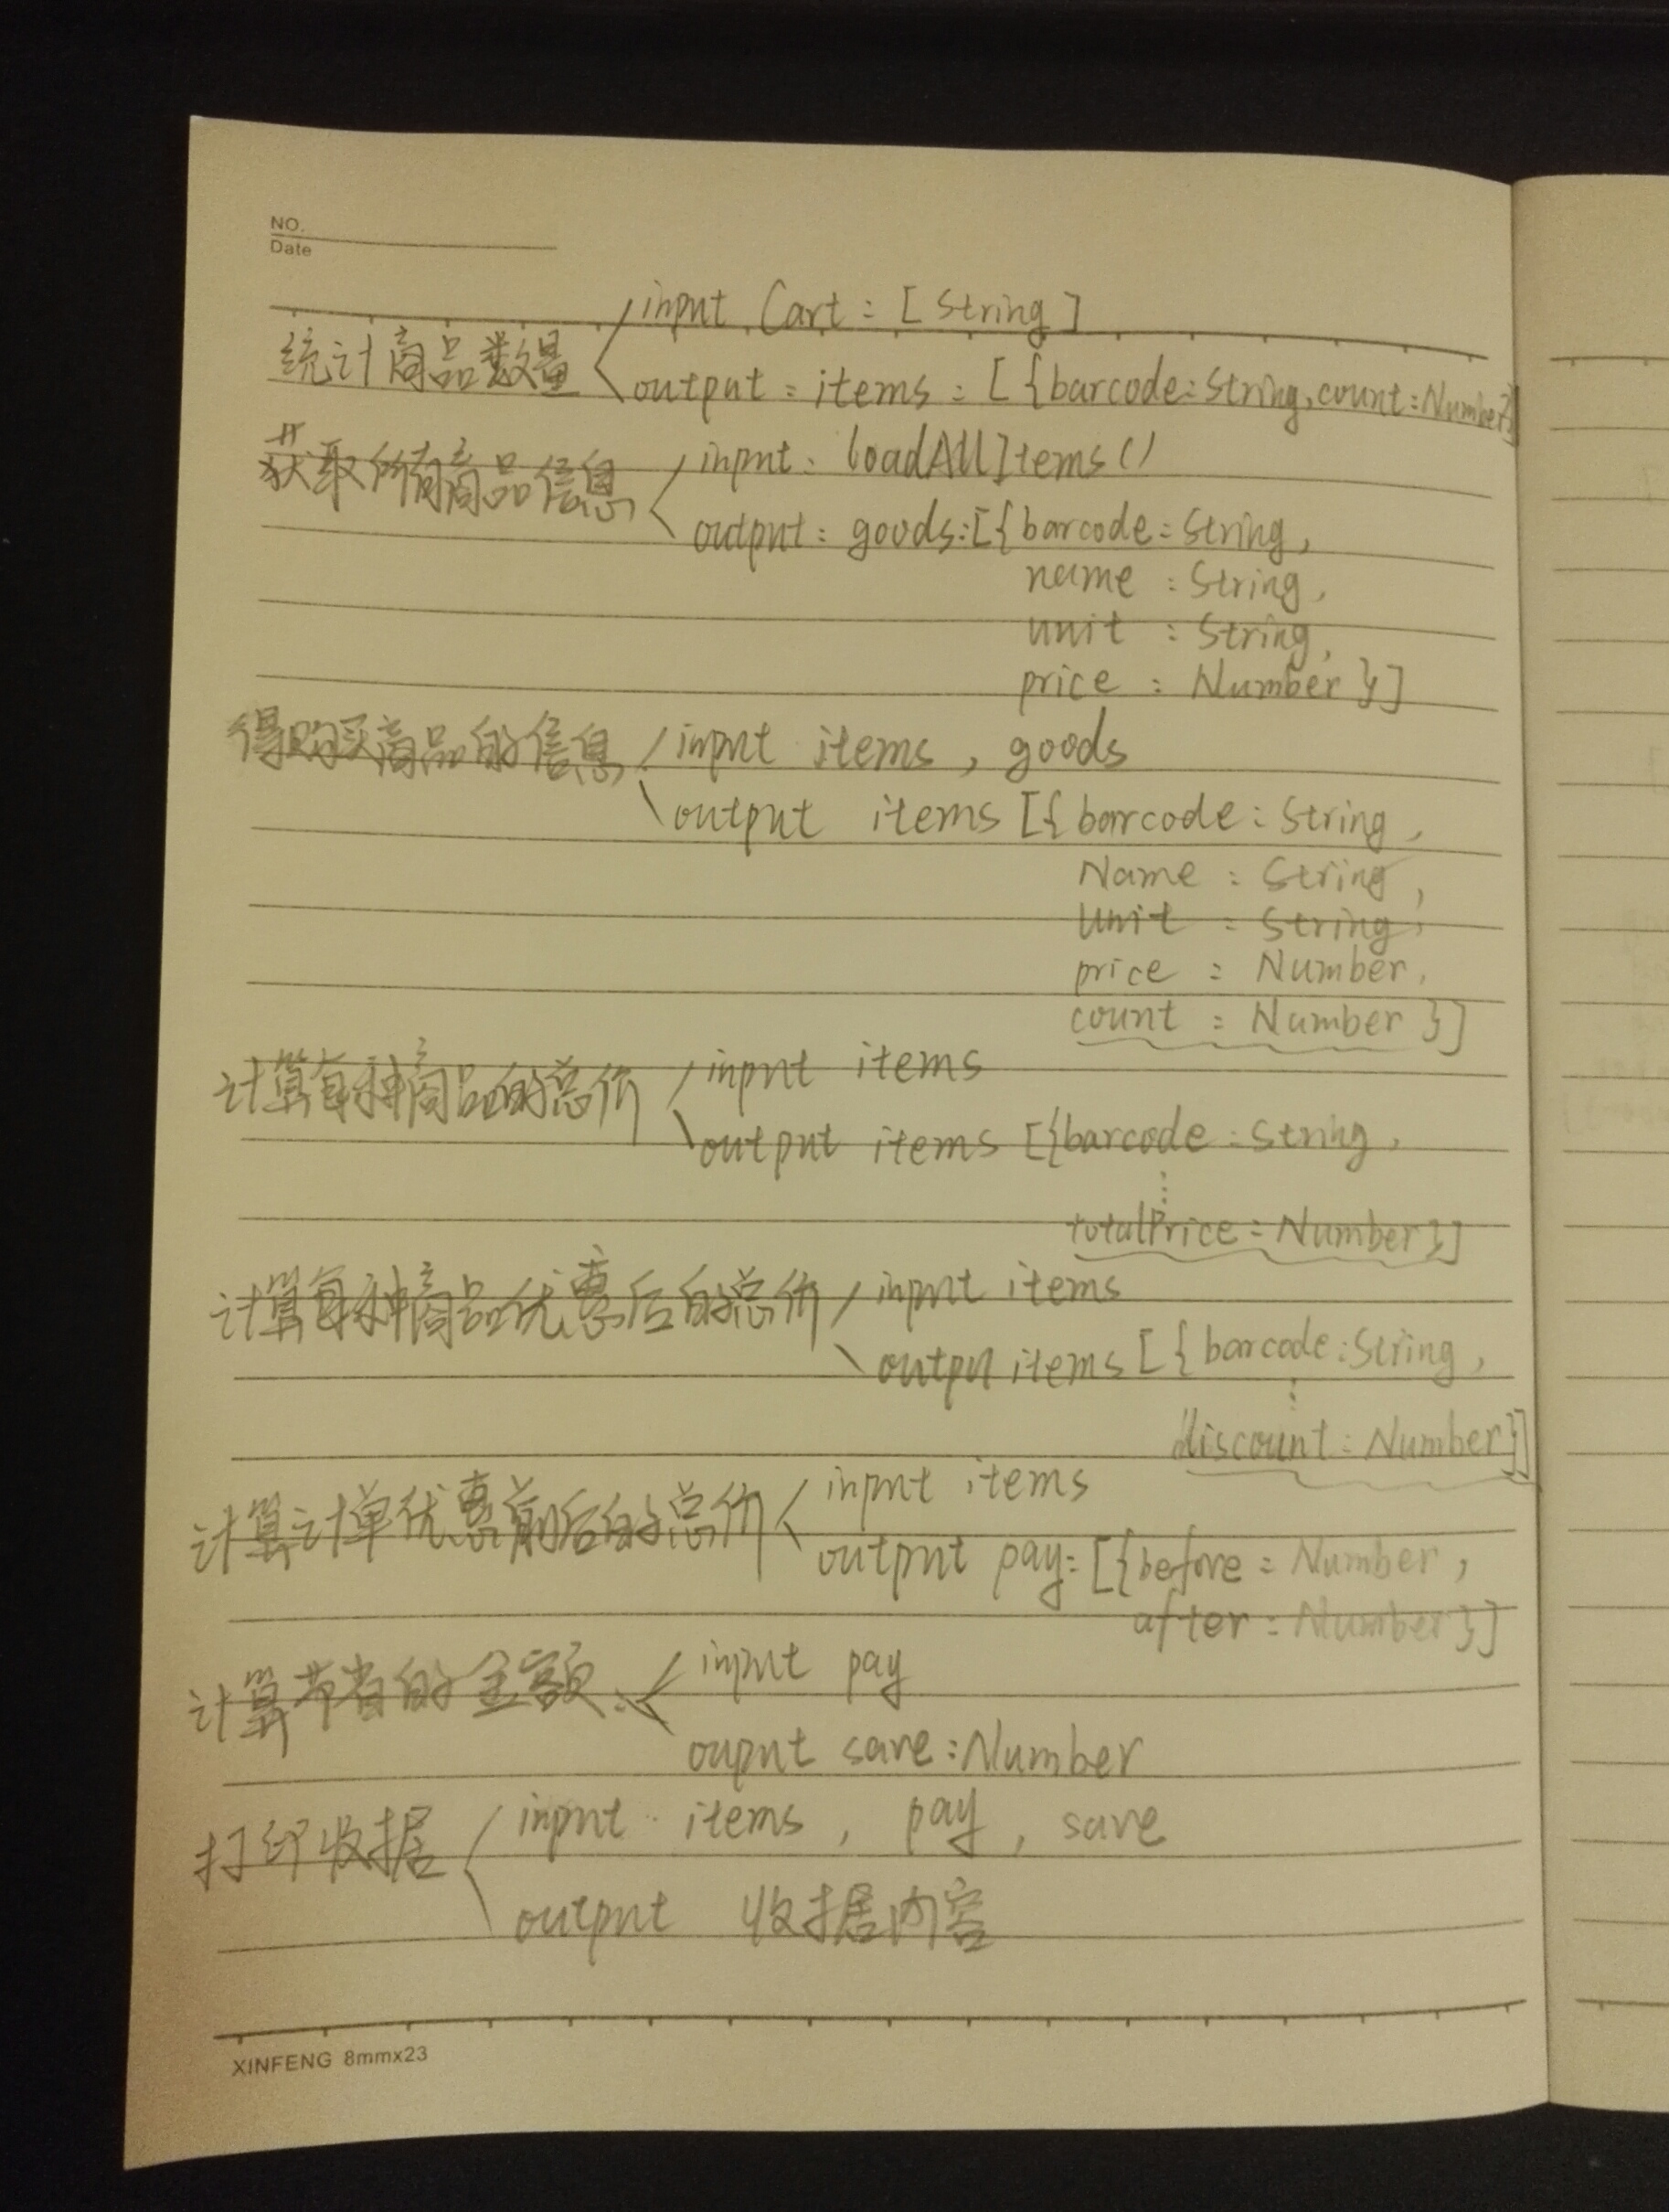 NO.
Date
input Cart : [ String ]
统计商品数量
output : items : [ {barcode : String, count : Number}]
input : loadAllItems ()
获取所有商品信息
output : goods : [{ barcode : String,
name : String,
unit : String,
price : Number }]
得购买商品的信息 input items , goods
output items [{ barcode : String ,
Name : String ,
unit : String ,
price : Number ,
count : Number }]
计算每种商品的总价 input items
output items [{barcode : String ,
⋮
totalPrice : Number}]
计算每种商品优惠后的总价 input items
outpu items [ { barcode : String ,
⋮
discount : Number}]
计算计单优惠前后的总价 input items
output pay : [{before : Number ,
after : Number }]
计算节省的金额 input pay
ouput save : Number
打印收据 input items , pay , save
output 收据内容
XINFENG 8mmx23